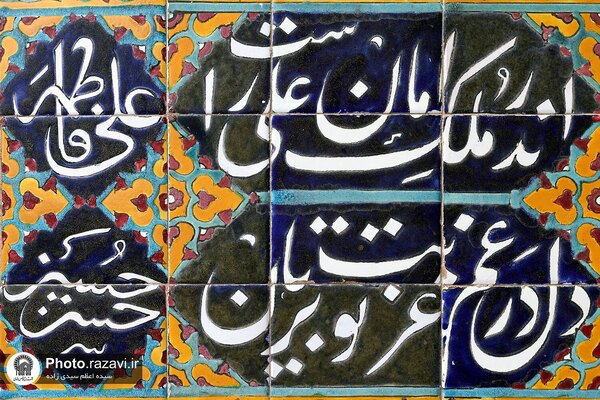 اندر ملک امان علی راست
دل در غم غربت تو بریان
علی فاطمه
حسین
حسن
Photo.razavi.ir
سیده اعظم سیدی زاده